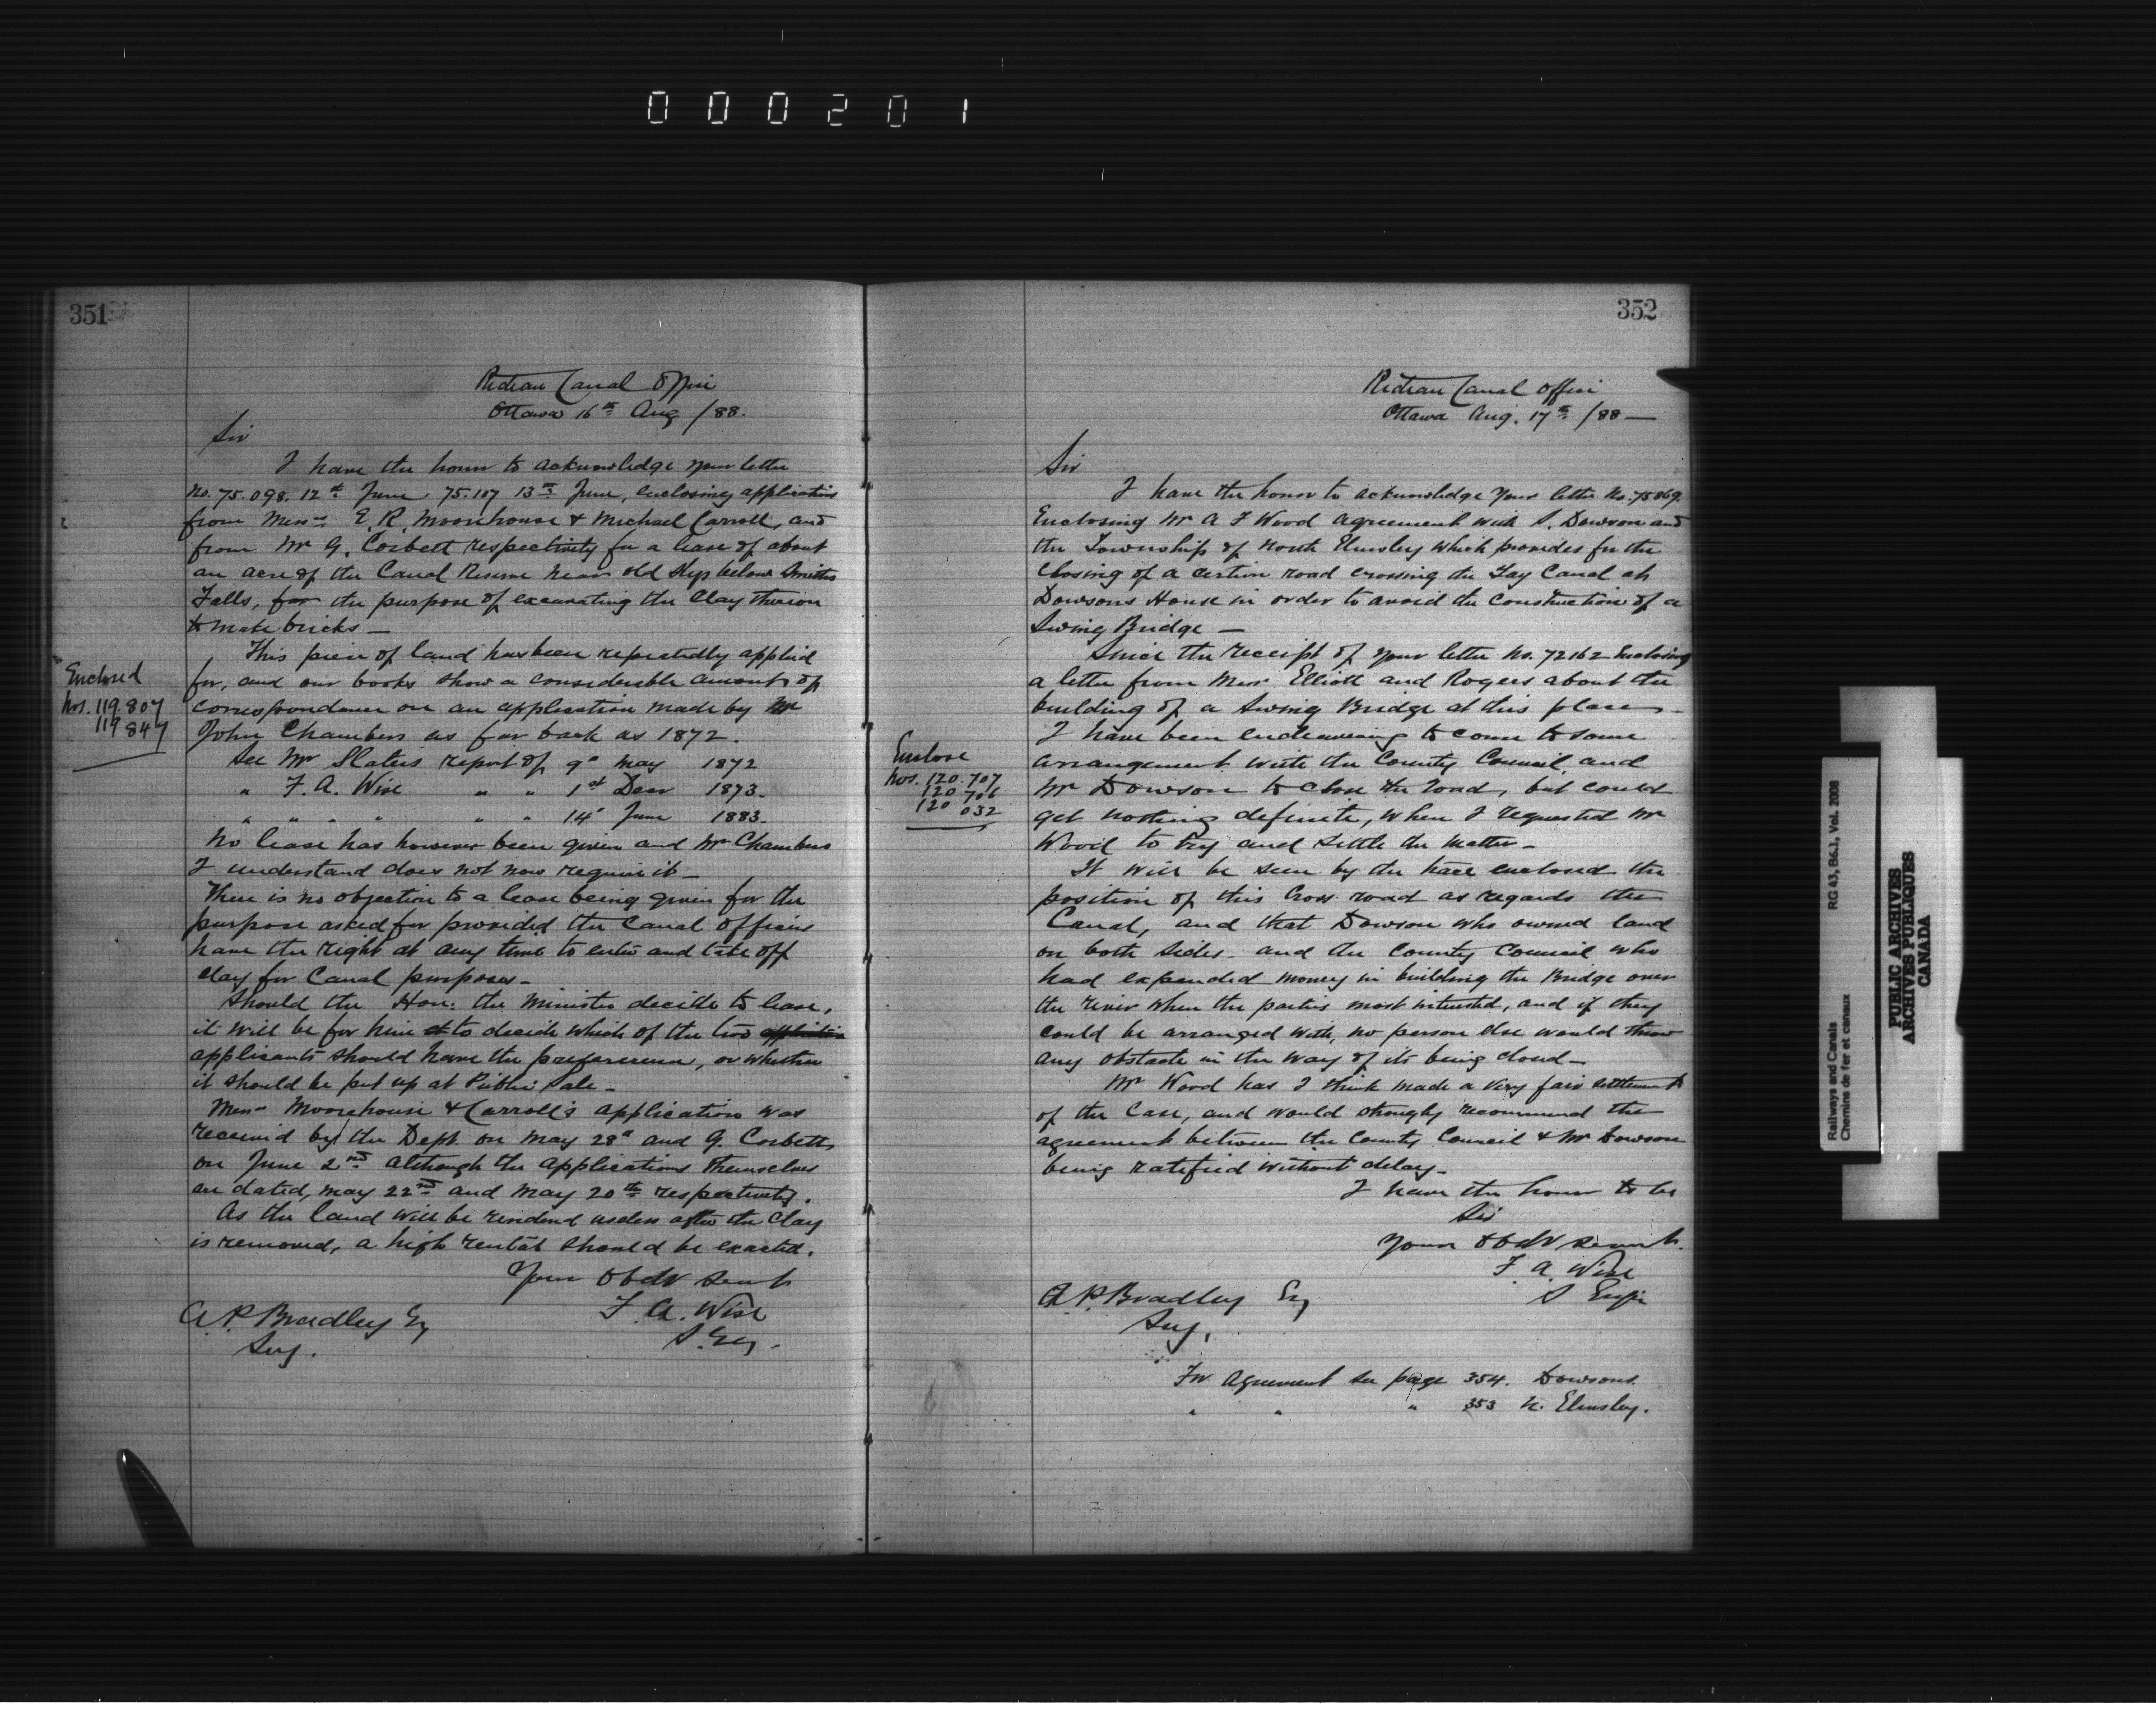 000201
351
Rideau Canal Office
Ottawa 16th Aug /88.
Sir
I have the honor to acknowledge your letter
No. 75.098. 12th June 75.107 13th June, enclosing applications
from Messrs E. R. Moorehouse & Michael Carroll, and
from Mr G. Corbett respectively for a lease of about
an acre of the Canal Reserve near old Slys below Smiths
Falls, for the purpose of excavating the Clay thereon
to make bricks —
This piece of land has been repeatedly applied
for, and our books show a considerable amount of
correspondence on an application made by Mr
John Chambers as far back as 1872.
See Mr Slaters report of 9" May 1872
" F. A. Wise " " 1st Decr 1873.
" " " " " " 14" June 1883.
No lease has however been given and Mr Chambers
I understand does not now require it —
There is no objection to a lease being given for the
purpose asked for provided the Canal Officers
have the right at any time to enter and take off
clay for Canal purposes —
Should the Hon: the Minister decide to lease,
it will be for him to decide which of the two
applicants should have the preference, or whether
it should be put up at Public Sale —
Messrs Moorehouse & Carroll's application was
received by the Dept. on May 28" and G. Corbetts
on June 2nd although the applications themselves
are dated, May 22nd and May 20th respectively.
As the land will be rendered useless after the Clay
is removed, a high rental should be exacted.
Your Obdt Servt
F. A. Wise
S. Eng.
A. P. Bradley Esq
Secy.
Enclosed
Nos. 119.807
119 847
352
Rideau Canal Office
Ottawa Aug. 17th /88 —
Sir
I have the honor to acknowledge your letter No. 75869.
Enclosing Mr A F Wood agreement with S. Dowson and
the Township of North Elmsley which provides for the
closing of a certain road crossing the Tay Canal at
Dowsons House in order to avoid the construction of a
Swing Bridge —
Since the receipt of your letter No. 72162 Enclosing
a letter from Messrs Elliott and Rogers about the
building of a Swing Bridge at this place —
I have been endeavoring to come to some
arrangement with the County Council and
Mr Dowson to close the road, but could
get nothing definite, when I requested Mr
Wood to try and settle the matter —
It will be seen by the trace enclosed the
position of this Cross road as regards the
Canal, and that Dowson who owned land
on both sides — and the County Council who
had expended money in building the Bridge over
the river when the parties most interested, and if they
could be arranged with, no person else would throw
any obstacle in the way of its being closed —
Mr Wood has I think made a very fair settlement
of the Case, and would strongly recommend the
agreement between the County Council & Mr Dowson
being ratified without delay —
I have the honor to be
Sir
Your Obdt Servt.
F. A. Wise
S Engr
A. P. Bradley Esq
Secy,
Enclose
Nos. 120.707
120 706
120 032
For Agreement see page 354. Dowsons.
" " " 353 N. Elmsley.
Railways and Canals
Chemins de fer et canaux
RG 43, B6.1, Vol. 2008
PUBLIC ARCHIVES
ARCHIVES PUBLIQUES
CANADA